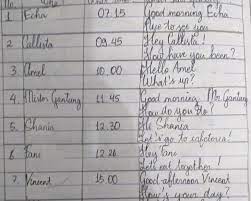 No. Who
1 Echa 07.15 Good morning Echa
Nice to see you
2 Callista 09.45 Hey Callista!
How have you been?
3 Amel 10.00 Hello Amel
What's up?
4 Mister Ganteng 11.45 Good morning, Mr. Ganteng
How do you do?
5. Shania 12.30 Hi Shania
Let's go to cafeteria!
6 Tani 12.26 Hey Tani
Let's eat together!
7. Vincent 15.00 Good afternoon Vincent
How's your day?